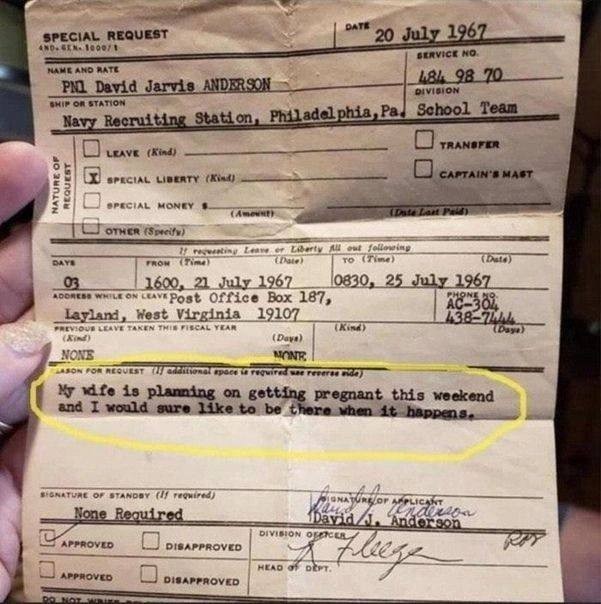 SPECIAL REQUEST
DATE 20 July 1967
4ND-GEN-1000/1
SERVICE NO.
NAME AND RATE
484 98 70
PN1 David Jarvis ANDERSON
DIVISION
SHIP OR STATION
Navy Recruiting Station, Philadelphia, Pa. School Team
NATURE OF REQUEST
LEAVE (Kind)
TRANSFER
X SPECIAL LIBERTY (Kind)
CAPTAIN'S MAST
SPECIAL MONEY $
(Amount) (Date Last Paid)
OTHER (Specify)
If requesting Leave or Liberty fill out following
DAYS FROM (Time) (Date) TO (Time) (Date)
03 1600, 21 July 1967 0830, 25 July 1967
ADDRESS WHILE ON LEAVE Post Office Box 187, PHONE NO.
AC-304
Layland, West Virginia 19107 438-7444
PREVIOUS LEAVE TAKEN THIS FISCAL YEAR (Kind) (Days)
(Kind) (Days)
NONE NONE
REASON FOR REQUEST (If additional space is required use reverse side)
My wife is planning on getting pregnant this weekend
and I would sure like to be there when it happens.
SIGNATURE OF STANDBY (If required) SIGNATURE OF APPLICANT
David J. Anderson
None Required David J. Anderson
APPROVED DISAPPROVED DIVISION OFFICER
APPROVED DISAPPROVED HEAD OF DEPT.
DO NOT WRITE